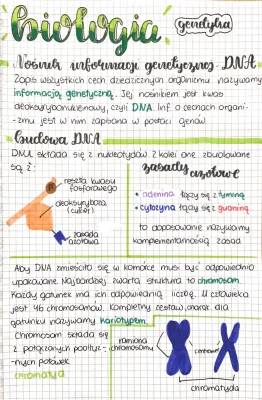 biologia
genetyka
Nośnik informacji genetycznej - DNA
Zapis wszystkich cech dziedzicznych organizmu nazywamy
informacją genetyczną. Jej nośnikiem jest kwas
deoksyrybonukleinowy, czyli DNA. Inf. o cechach organi-
-zmu jest w nim zapisana w postaci genów
budowa DNA
DNA składa się z nukleotydów z kolei one zbudowane
są z:
reszta kwasu
fosforowego
deoksyryboza
(cukier)
zasada
azotowa
zasady
azotowe
• adenina łączy się z tyminą
• cytozyna łączy się z guaniną
to dopasowanie nazywamy
komplementarnością zasad
Aby DNA zmieściło się w komórce musi być odpowiednio
upakowane. Najbardziej zwartą strukturą to chromosom.
Każdy gatunek ma ich odpowiednią liczbę. U człowieka
jest 46 chromosomów. Kompletny zestaw charak. dla
gatunku nazywamy kariotypem.
Chromosom składa się
z połączonych podłuż-
-nych połówek
chromatyd
ramiona
chromosomu
centromer
chromatyda